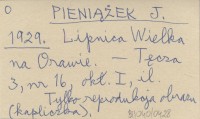 O PIENIĄŻEK J.
1929. Lipnica Wielka
na Orawie. — Tęcza
3, nr 16, okł. I, il.
Tylko reprodukcja obrazu
(kapliczka).